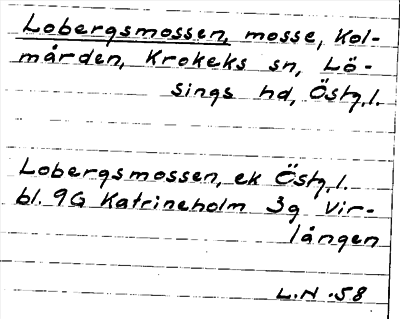 Lobergsmossen, mosse, Kol-
mården, Krokeks sn, Lö-
sings hd, Östg.l.
Lobergsmossen, ek Östg.l.
bl. 9G Katrineholm 3g Vir-
lången
L.N.58